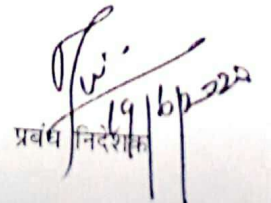 19/6/2020
प्रबंध निदेशक